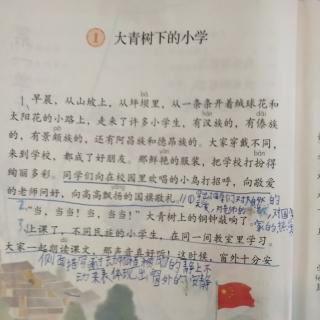 1 大青树下的小学
bà
1、早晨，从山坡上，从坪坝里，从一条条开着绒球花和
hàn dǎi
太阳花的小路上，走来了许多小学生，有汉族的，有傣族
的，有景颇族的，还有阿昌族和德昂族的。大家穿戴不同，
来到学校，都成了好朋友。那鲜艳的服装，把学校打扮得
绚丽多彩。同学们向在校园里欢唱的小鸟打招呼，向敬爱
的老师问好，向高高飘扬的国旗敬礼。
2、“当，当当！当，当当！”大青树上的铜钟敲响了。
3、上课了，不同民族的小学生，在同一间教室里学习。
大家一起朗读课文，那声音真好听！这时候，窗外十分安
侧面描写
动来表体现出窗外的安静